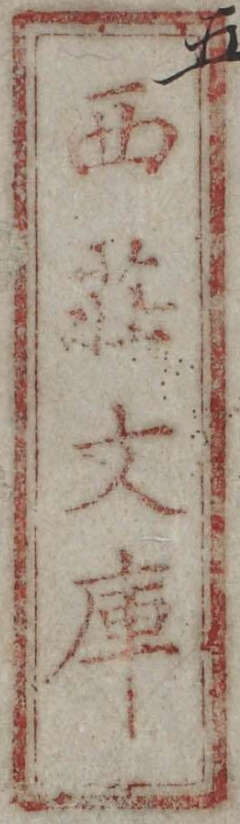 西莊文庫
五